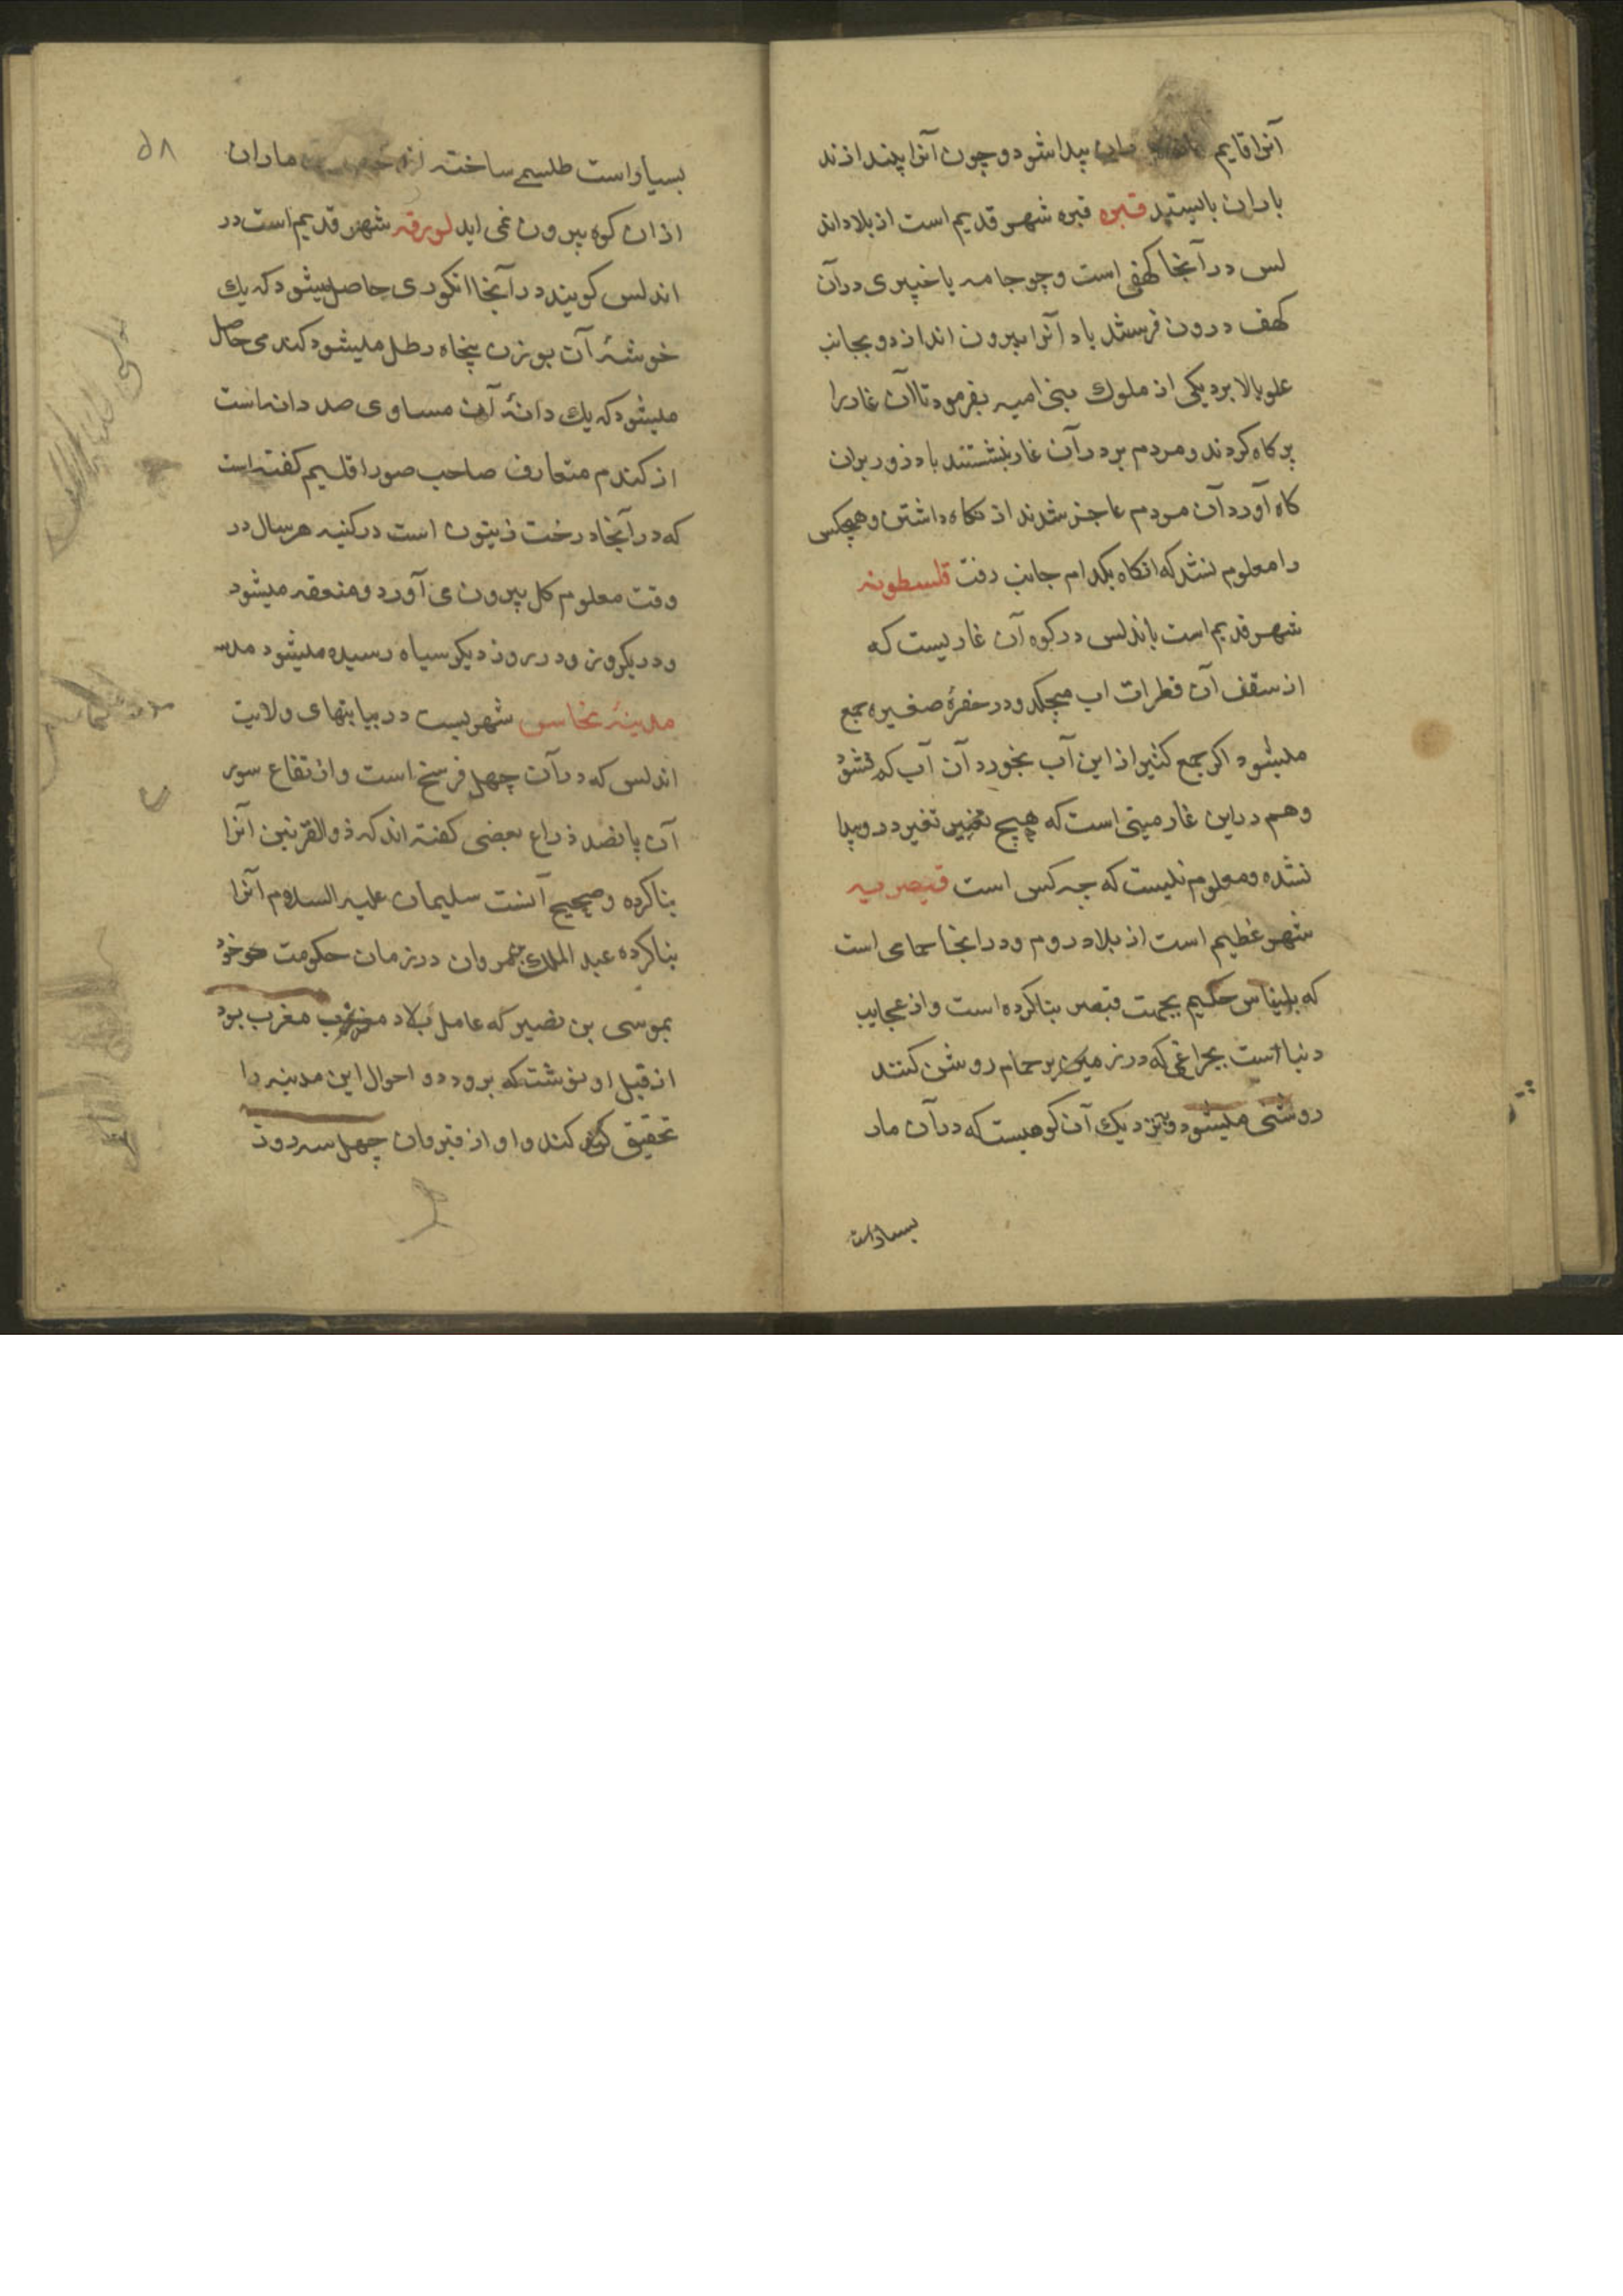 آنرا قایم پیدا شود و چون آنرا بیندازند
باران بایستید قبره قبره شهر قدیم است از بلاد اند
لس در آنجا کهفی است و چو جامه یا خپری در آن
کهف درون فرستند باد آنرا بیرون اندازد و بجانب
علو بالا برد یکی از ملوک بنی امیه بفرمود تا آن غار را
پر کاه کردند و مردم بر در آن غار بنشستند باد زور بران
کاه آورد آن مردم عاجز شدند از نکاه داشتن و هیچکس
را معلوم نشد که انکاه بکدام جانب رفت قلسطونه
شهر قدیم است باندلس در کوه آن غاریست که
از سقف آن قطرات اب میچکد و در حفرهٔ صغیره جمع
میشود اکر جمع کثیر از این آب بخورد آن آب کم نشود
و هم در این غار میتی است که هیچ تغییر در و پیدا
نشده و معلوم نیست که چه کس است قیصریه
شهر عظیم است از بلاد روم و در انجا حمامی است
که بلیناس حکیم بجهت قیصر بنا کرده است و از عجایب
دنیا است بچراغی که در زمین بر حمام روشن کنند
روشنی میشود و بنزدیک آن کوهیست که در آن مار
بسیار است
۵۸
بسیار است طلسمی ساخته ماران
از ان کوه بیرون نمی اید لورقه شهر قدیم است در
اندلس کویند در آنجا انکوری حاصل میشود که یک
خوشهٔ آن بوزن پنجاه رطل میشود کندمی حاصل
میشود که یک دانهٔ آن مساوی صد دانه است
از کندم متعارف صاحب صور اقلیم کفته است
که در آنجا درخت زیتون است در کنیسه هر سال در
وقت معلوم کل بیرون می آورد و منعقد میشود
و در یکروز و در روز دیکر سیاه رسیده میشود مدینه
مدینهٔ نحاس شهریست در بیابنهای ولایت
اندلس که در آن چهل فرسخ است و ارتفاع سور
آن پانصد ذراع بعضی کفته اند که ذوالقرنین آنرا
بنا کرده و صحیح آنست سلیمان علیه السلام آنرا
بنا کرده عبد الملک بن مروان در زمان حکومت خود
بموسی بن نصیر که عامل بلاد مغرب بود
از قبل او نوشت که برود و احوال این مدینه را
تحقیق کند و او از قیروان چهل سه روز